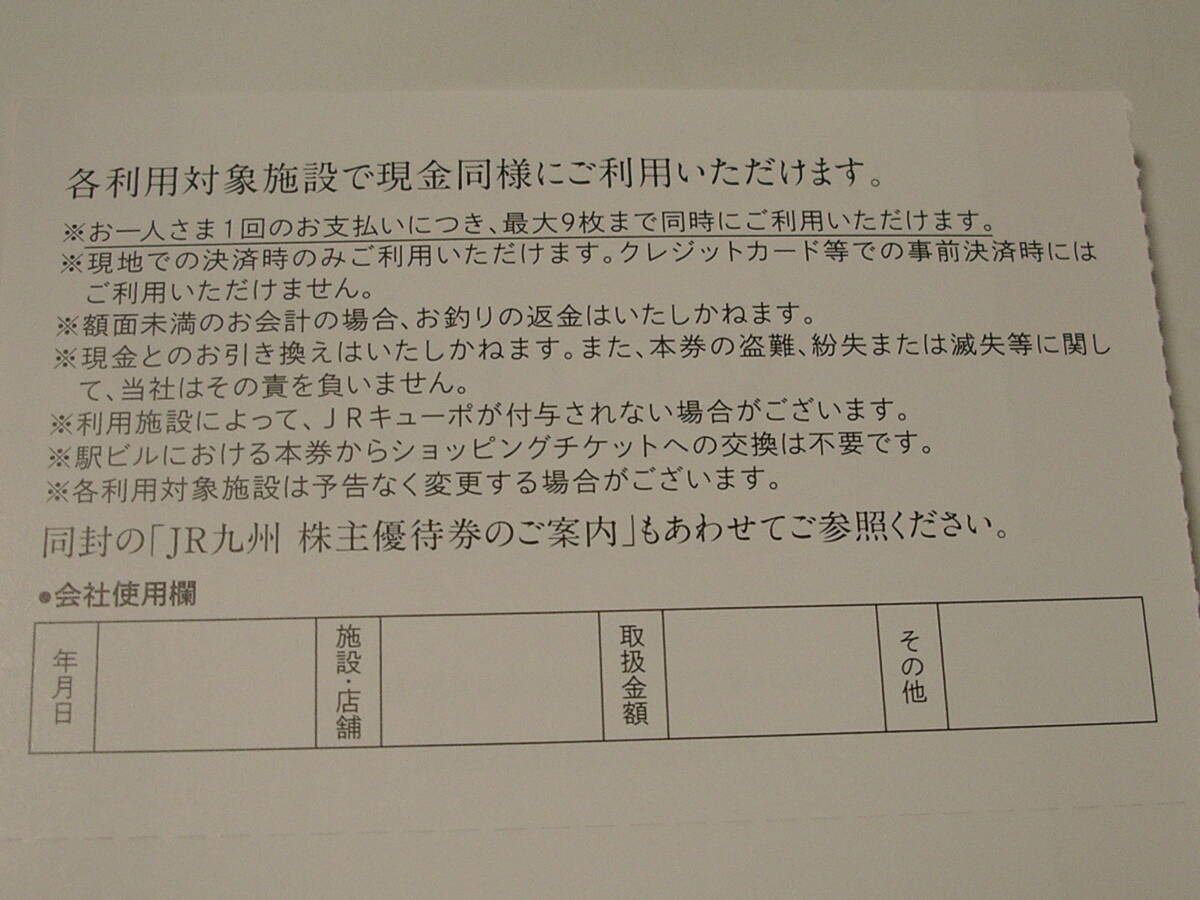 各利用対象施設で現金同様にご利用いただけます。
※お一人さま1回のお支払いにつき、最大9枚まで同時にご利用いただけます。
※現地での決済時のみご利用いただけます。クレジットカード等での事前決済時には
ご利用いただけません。
※額面未満のお会計の場合、お釣りの返金はいたしかねます。
※現金とのお引き換えはいたしかねます。また、本券の盗難、紛失または滅失等に関し
て、当社はその責を負いません。
※利用施設によって、JRキューポが付与されない場合がございます。
※駅ビルにおける本券からショッピングチケットへの交換は不要です。
※各利用対象施設は予告なく変更する場合がございます。
同封の「JR九州 株主優待券のご案内」もあわせてご参照ください。
●会社使用欄
年月日
施設・店舗
取扱金額
その他